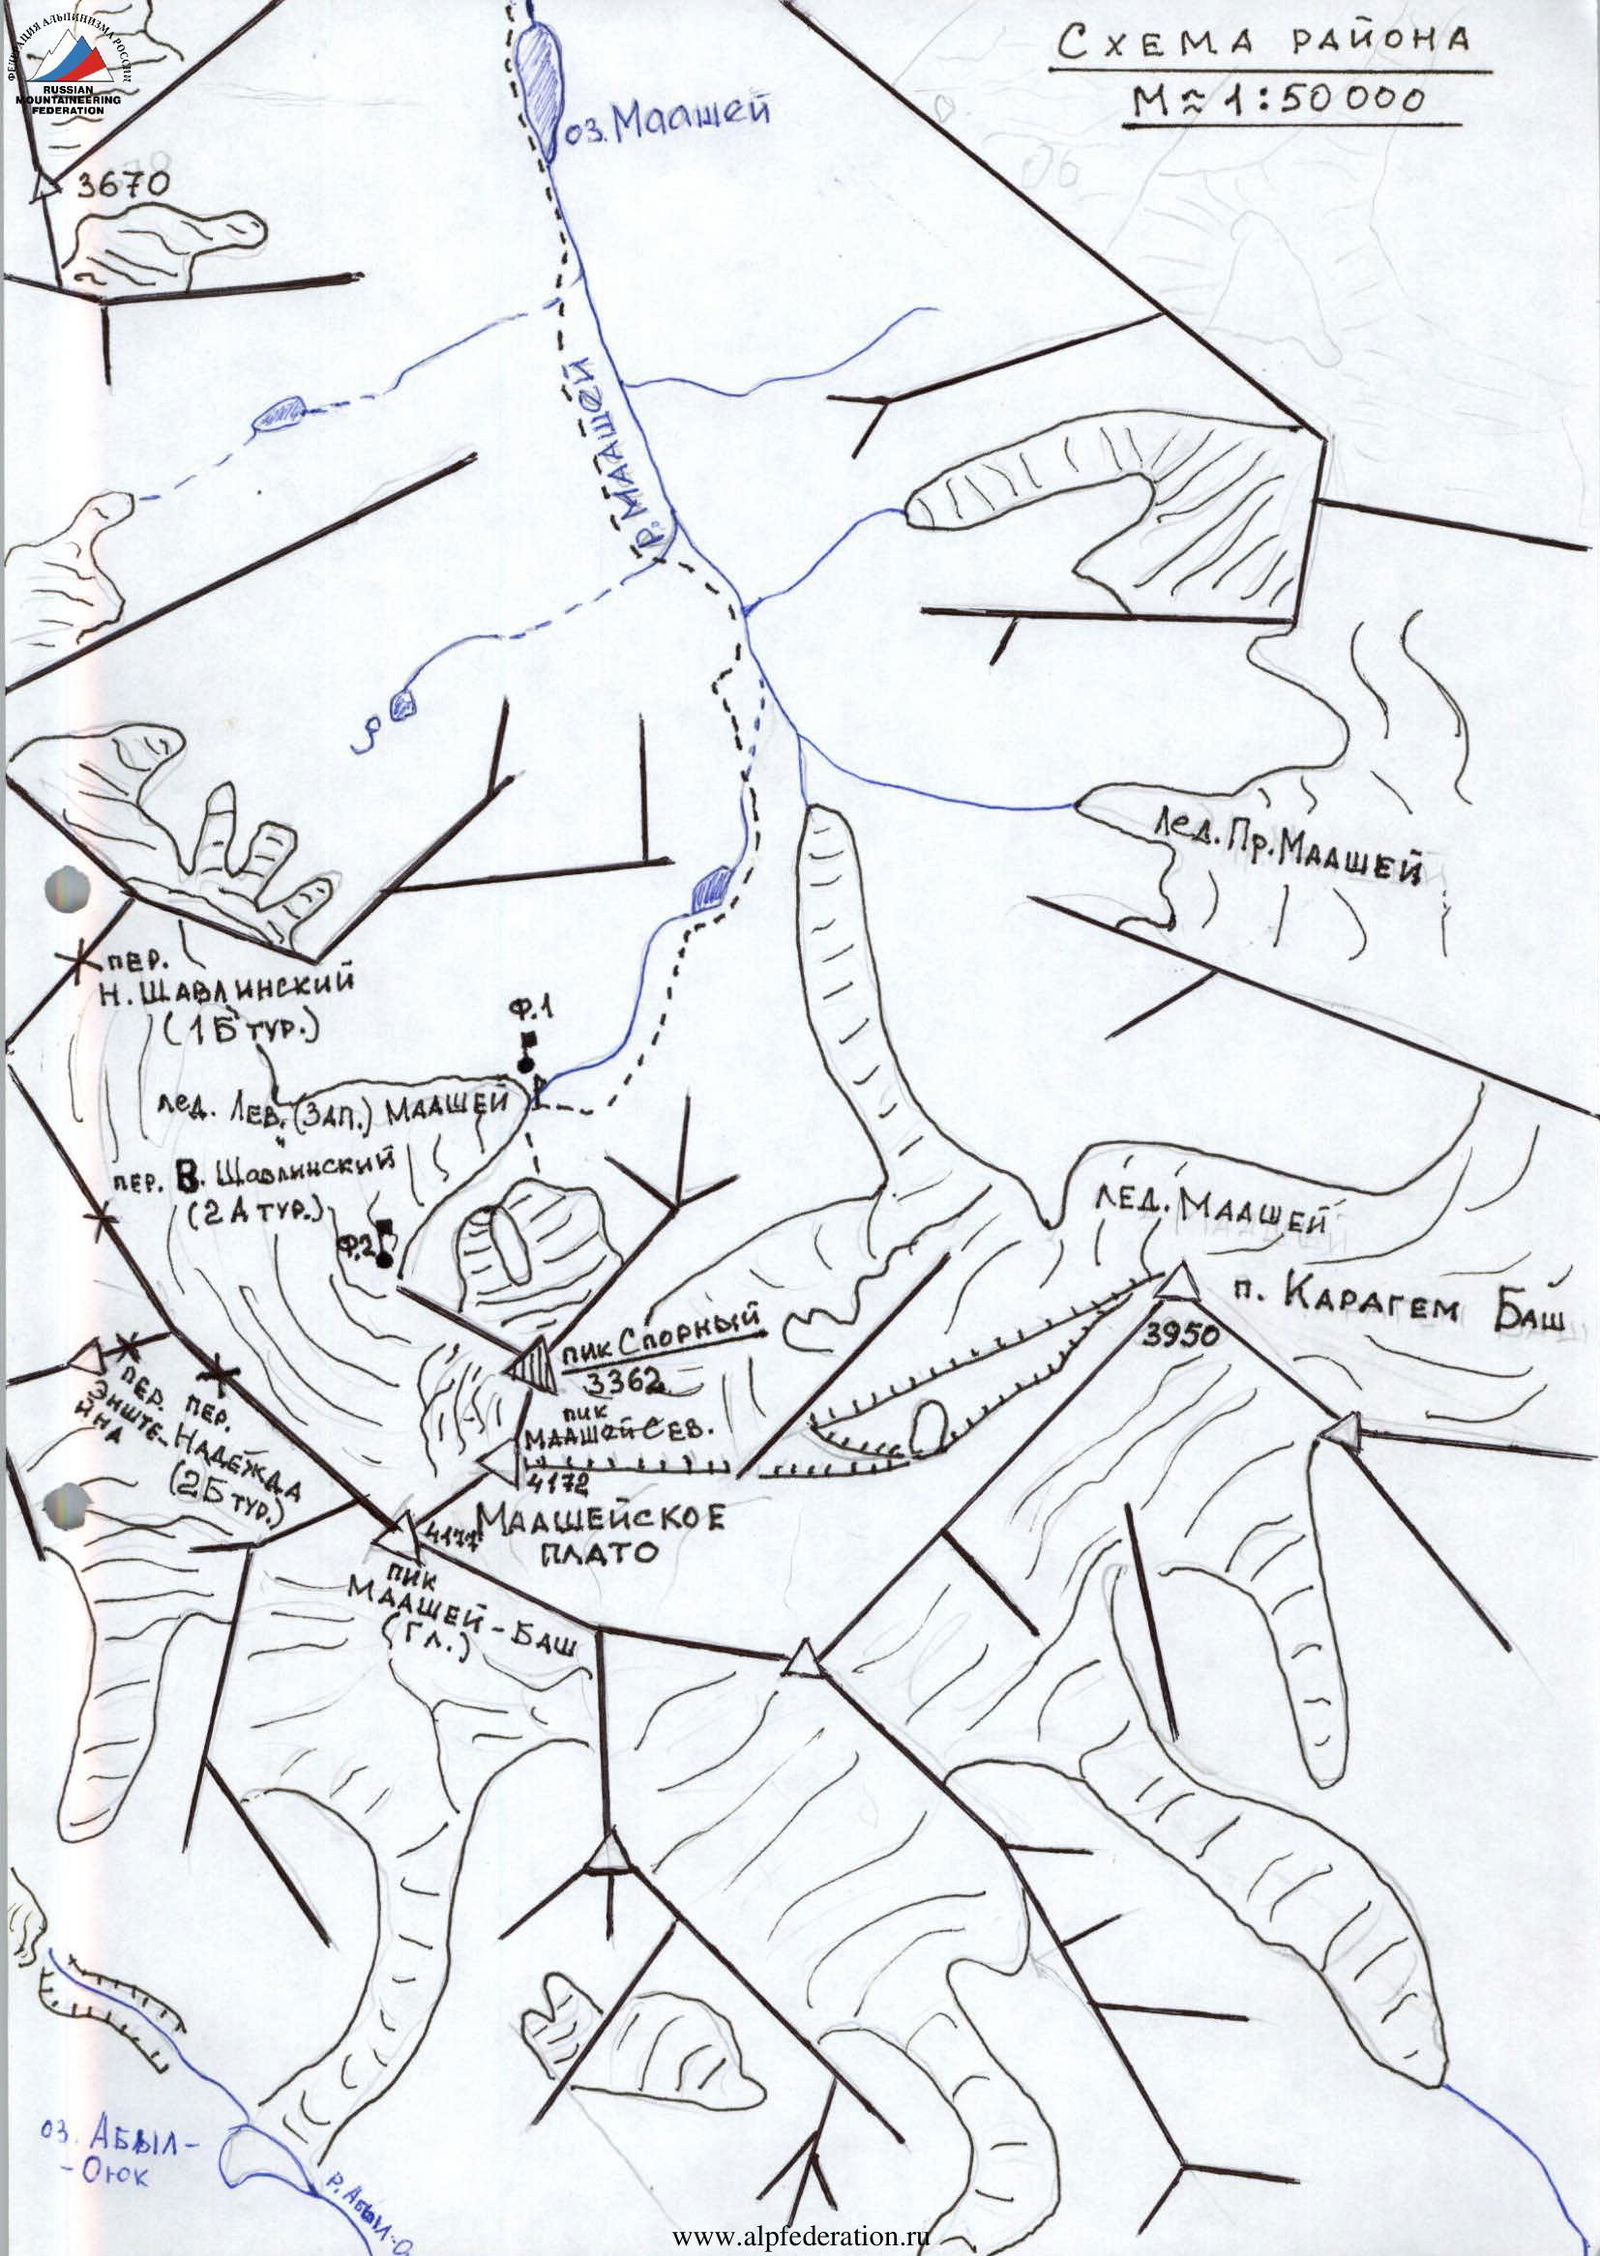 ФЕДЕРАЦИЯ АЛЬПИНИЗМА РОССИИ
RUSSIAN
MOUNTAINEERING
FEDERATION
СХЕМА РАЙОНА
М ≈ 1:50 000
оз. Маашей
3670
р. МААШЕЙ
лед. Пр. МААШЕЙ
пер.
Н. ШАВЛИНСКИЙ
(1Б тур.)
Ф.1
лед. Лев. (Зап.) МААШЕЙ
пер. В. Шавлинский
(2А тур.)
Ф.2
ЛЕД. МААШЕЙ
п. КАРАГЕМ БАШ
3950
пик Спорный
3362
пик
МААШЕЙ СЕВ.
4172
пер.
Эйнште-
йна
пер.
НАДЕЖДА
(2Б тур.)
МААШЕЙСКОЕ
ПЛАТО
4177
пик
МААШЕЙ-БАШ
(Гл.)
оз. АБЫЛ-
-Оюк
р. Абыл-О
www.alpfederation.ru